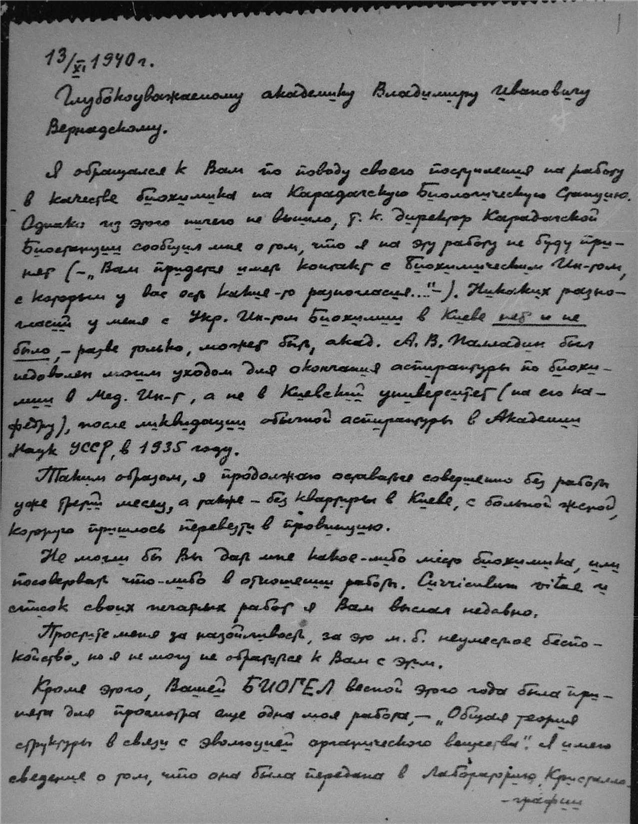 13/XI 1940 г.
Глубокоуважаемому академику Владимиру Ивановичу
Вернадскому.
Я обращался к Вам по поводу своего поступления на работу
в качестве биохимика на Карадагскую Биологическую Станцию.
Однако из этого ничего не вышло, т. к. директор Карадагской
Биостанции сообщил мне о том, что я на эту работу не буду при-
нят (-„Вам придется иметь контакт с Биохимическим Ин-том,
с которым у вас есть какие-то разногласия..."-). Никаких разно-
гласий у меня с Укр. Ин-том Биохимии в Киеве нет и не
было, - разве только, может быть, акад. А. В. Палладин был
недоволен моим уходом для окончания аспирантуры по биохи-
мии в Мед. Ин-т, а не в Киевский университет (на его ка-
федру), после ликвидации обычной аспирантуры в Академии
Наук УССР, в 1935 году.
Таким образом, я продолжаю оставаться совершенно без работы
уже третий месец, а также - без квартиры в Киеве, с больной женой,
которую пришлось перевезти в провинцию.
Не могли бы Вы дать мне какое-либо место биохимика, или
посоветовать что-либо в отношении работы. Curriculum vitae и
список своих печатных работ я Вам выслал недавно.
Простите меня за назойливость, за это м. б. неуместное беспо-
койство, но я не могу не обратиться к Вам с этим.
Кроме этого, Вашей БИОГЕЛ весной этого года была при-
нята для просмотра еще одна моя работа, - „Общая теория
структуры в связи с эволюцией органического вещества". Я имею
сведения о том, что она была передана в Лабораторию Кристалло-
-графии